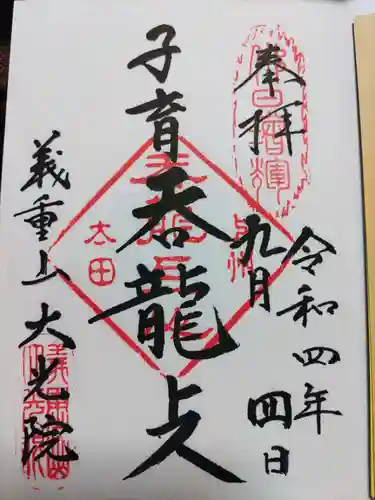 奉拝
令和四年
九月四日
子育呑龍上人
太田
義重山大光院